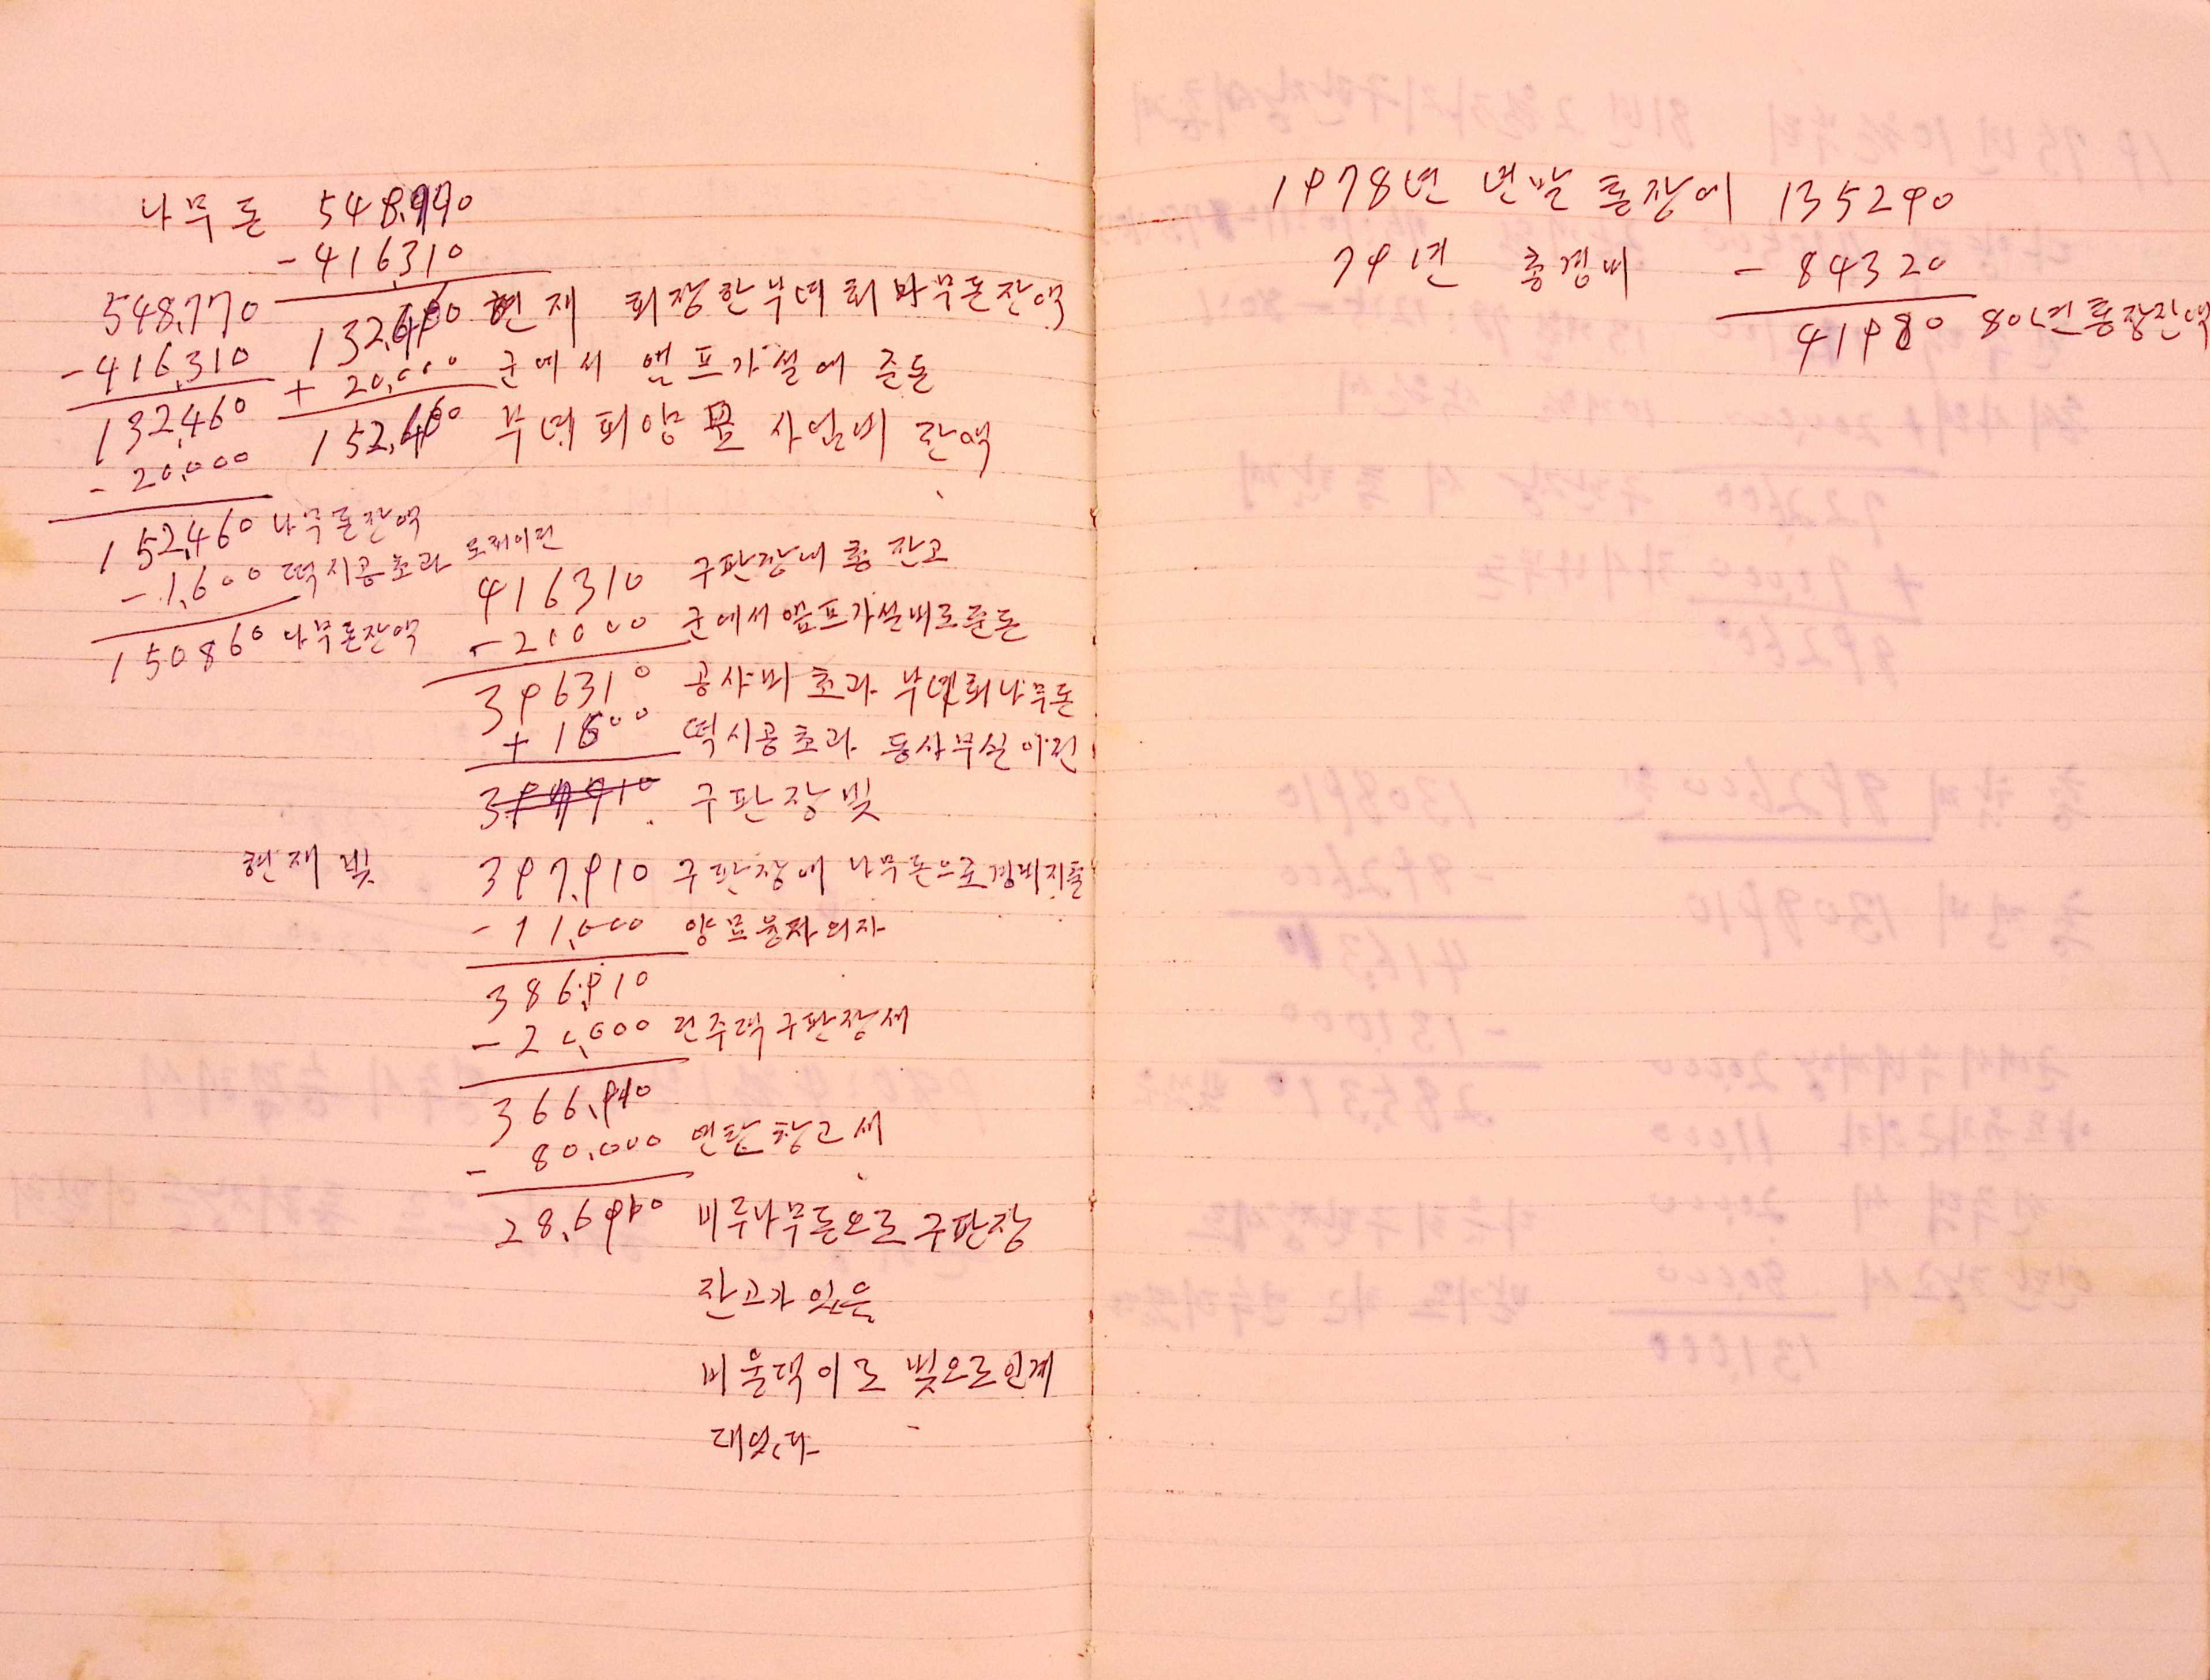 나무돈 548,770
-416,310
132,460 현재 회장한부녀회나무돈잔액
+ 20,000 군에서 앰프가설에 준돈
152,460 부녀회양묘사업비 잔액
548,770
-416,310
132,460
-20,000
152,460 나무돈잔액
-1,600 떡시공초과
150860 나무돈잔액
416310 구판장내총잔고
-20000 군에서앰프가설비로준돈
396310 공사비초과 부녀회나무돈
+ 1600 떡시공초과 동사무실이전
구판장빚
현재빚 397,910 구판장에 나무돈으로경비지출
-11,000 양묘융자이자
386,910
-20,000 전주댁구판장세
366,910
- 80,000 연탄창고세
28,6910 비루나무돈으로구판장
잔고가있음
비울댁이로 빚으로인계
대었다
1978년 년말통장에 135290
79년 총경비 - 84320
41980 80년통장잔액